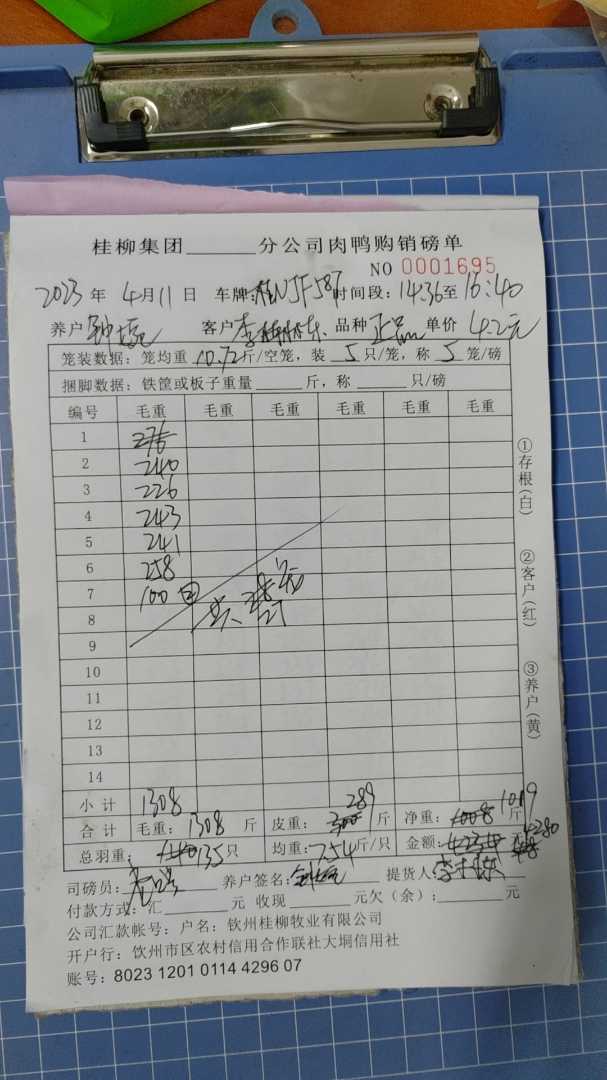 桂柳集团______分公司肉鸭购销磅单
NO 0001695
2023年 4月11日 车牌:桂NJF587 时间段:14:36至16:40
养户 钟 客户 李 品种 正品 单价 4.2元
笼装数据:笼均重 10.72 斤/空笼,装 5 只/笼,称 5 笼/磅
捆脚数据:铁筐或板子重量______斤,称______只/磅
编号 毛重 毛重 毛重 毛重 毛重 毛重
1 276
2 240
3 226
4 243
5 241
6 258
7 100
8 共
9
10
11
12
13
14
小计 1308
合计 毛重:1308 斤 皮重:289 斤 净重:1019 斤
总羽重:135只 均重:7.54斤/只 金额:4280 元
司磅员: 养户签名:钟 提货人:李
付款方式:汇______元 收现______元欠(余):______元
公司汇款帐号:户名:钦州桂柳牧业有限公司
开户行:钦州市区农村信用合作联社大垌信用社
账号:8023 1201 0114 4296 07
①存根(白)
②客户(红)
③养户(黄)